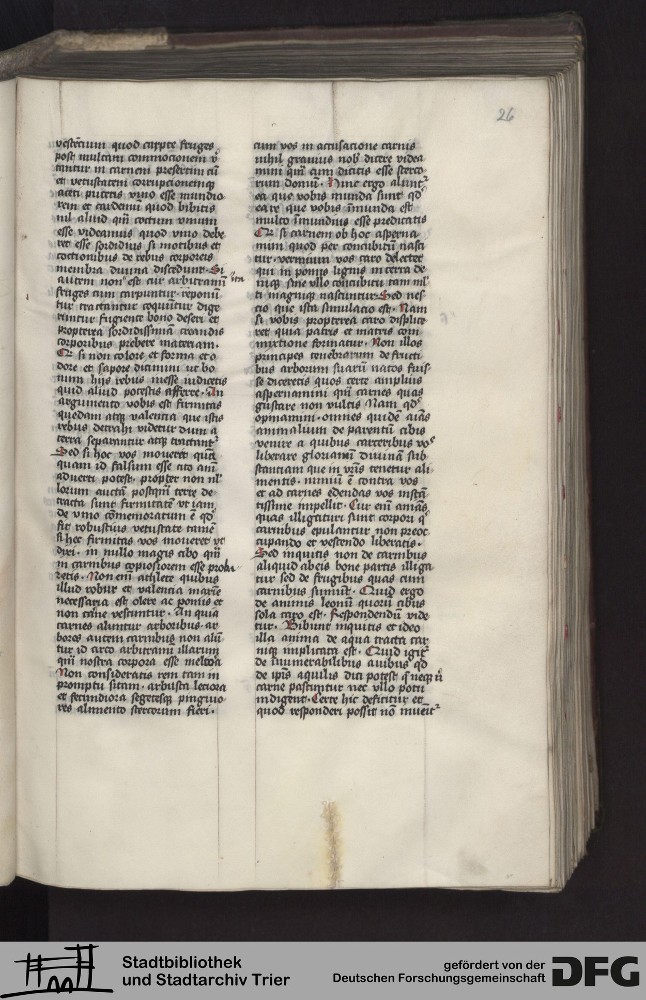 26
vestrum quod carpte fruges
post multam commocionem v̄
tuntur in carnem presertim cū
et vetustatem corrupcionemque
aceti putetis vino esse mundio
rem et cardenū quod bibitis
nil aliud qm̄ coctum vinum
esse videamus quod vino debe
ret esse sordidius si motibus et
coctionibus de rebus corporeis
membra diuina discedunt. Si
autem non est cur arbitramī
fruges cum carpuntur reponū
tur tractantur coquūtur dige
runtur fugiente bono deseri et
propterea sordidissimā creandis
corporibus prebere materiam.
Et si non colore et forma et o
dore et sapore dicimini ut bo
num hijs rebus inesse iudicetis
quid aliud potestis afferre. An
argumento vobis est firmitas
quedam atque valencia que istis
rebus detrahi videtur dum a
terra separantur atque tractantur
Sed si hoc vos moueret quā
quam id falsum esse cito am̄
aduerti potest. propter non nl̄
lorum auctā postqm̄ terre de
tracta sunt firmitatē vt iam
de vino cōmemoratum ē qd
fit robustius vetustate tamē
si hec firmitas vos moueret vt
dixi. in nullo magis cibo qm̄
in carnibus copiosiorem esse proba
retis. Non enī athlete quibus
illud robur et valencia maxīe
necessaria est olere ac pomis et
non carne vescuntur. An quia
carnes aluntur arboribus ar
bores autem carnibus non alū
tur id circo arbitrami illarum
qm̄ nostra corpora esse meliora
Non consideratis rem tam in
promptu sitam. arbusta leciora
et fecundiora segetesque pinguio
res alimento stercorum fieri.
cum vos in accusacione carnis
nihil grauius nob dicere videa
mini qm̄ cum dicitis esse sterco
rum domū. Hinc ergo aluntur
ea que vobis munda sunt qd
ea re que vobis īmunda est
multo īmundius esse predicatis
Et si carnem ob hoc asperna
mini quod per concubitū nasci
tur. vermium vos caro delectet
qui in pomis lignis in terra de
nique sine vllo concubitu tam ml
ti magnique nascuntur. Sed nes
cio que ista simulacio est. Nam
si vobis propterea caro displice
ret quia patris et matris com
mixtione formatur. Non illos
principes tenebrarum de fructi
bus arborum suarū natos fuis
se diceretis quos certe amplius
aspernamini qm̄ carnes quas
gustare non vultis Nam qd
opinamini. omnes quidē aīas
animalium de parentū cibis
venire a quibus carceribus vos
liberare gloriamī diuinā sub
stantiam que in vr̄is tenetur ali
mentis. nimiū ē contra vos
et ad carnes edendas vos instā
tissime impellit. Cur enī aīas
quas illigaturi sunt corpori qui
carnibus epulantur non preoc
cupando et vescendo liberatis.
Sed inquitis non de carnibus
aliquid abeis bone partis illiga
tur sed de frugibus quas cum
carnibus sumūt. Quid ergo
de animis leonū quorū cibus
sola caro est. Respondendū vide
tur. Bibunt inquitis et ideo
illa anima de aqua tracta car
nique implicata est. Quid igitur
de īnumerabilibus auibus qd
de ipīs aquilis dici potest que neque ū
carne pascuntur nec vllo potu
indigent. Certe hic deficitur et
quod responderi possit nō inueitur
Stadtbibliothek
und Stadtarchiv Trier
gefördert von der
Deutschen Forschungsgemeinschaft
DFG